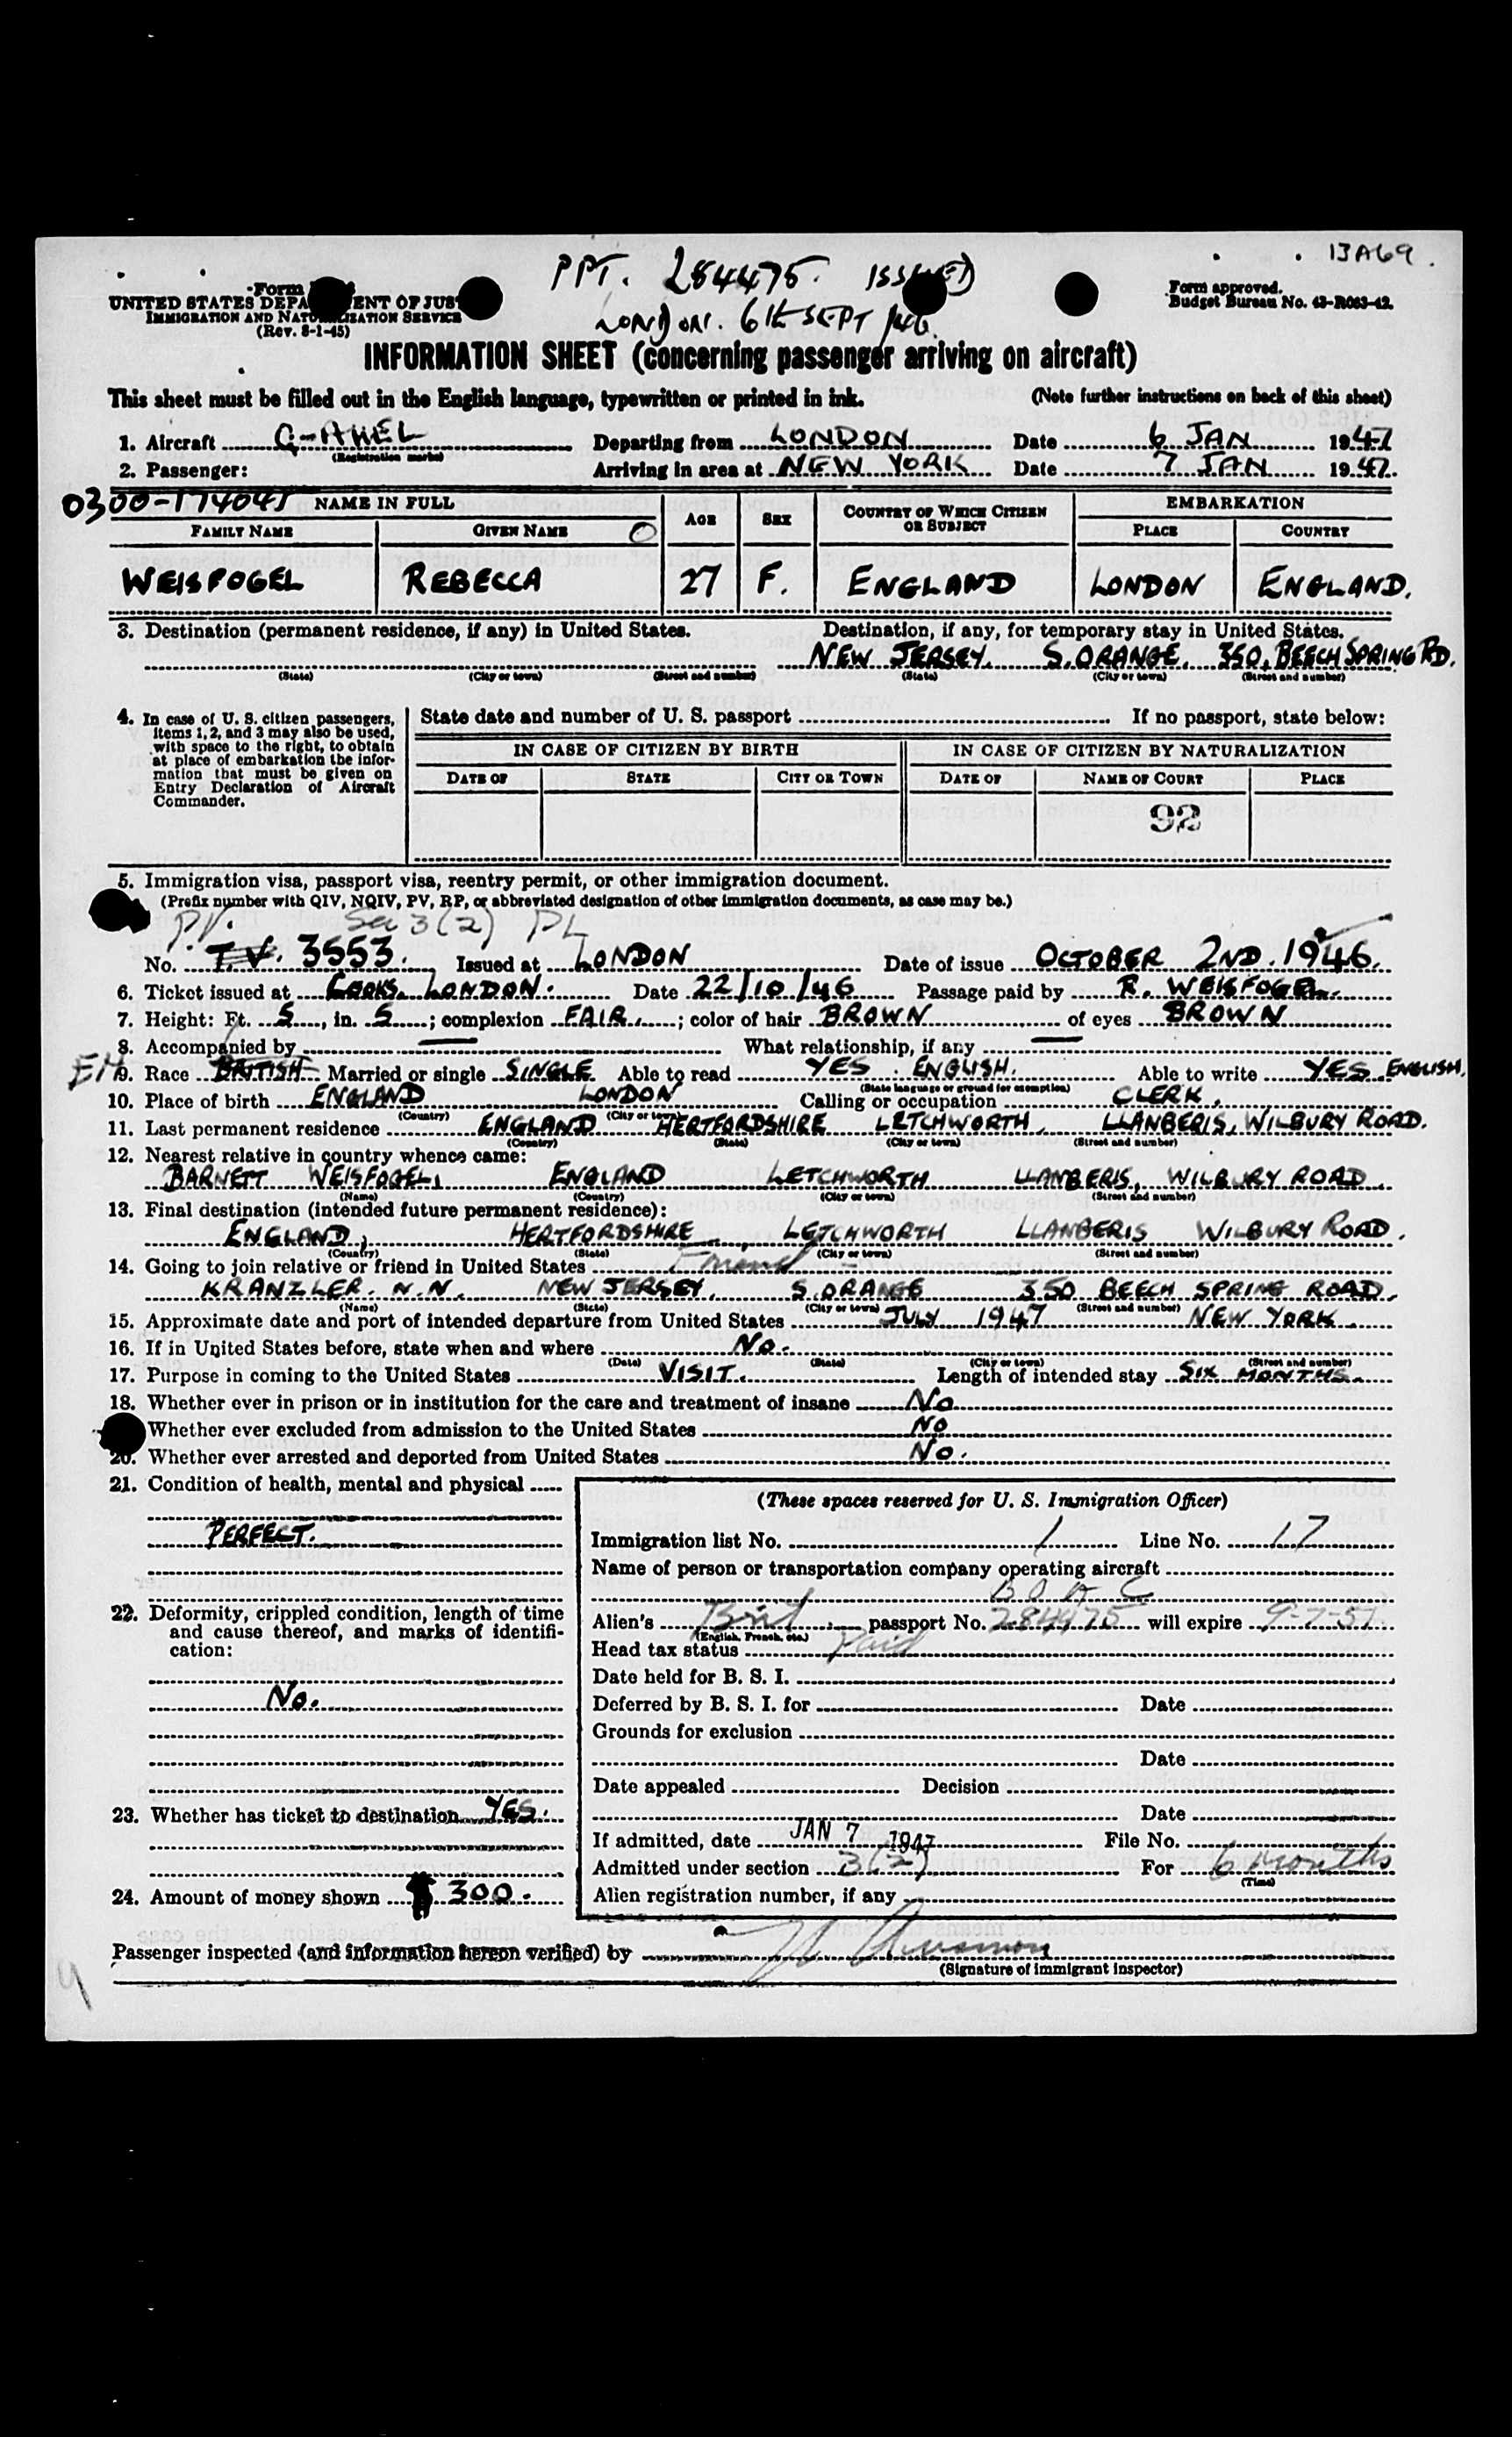 13A69.
PPT. 284475. ISSUED
LONDON. 6th SEPT /46.
Form
UNITED STATES DEPA ENT OF JUS
IMMIGRATION AND NATU IZATION SERVICE
(Rev. 8-1-45)
Form approved.
Budget Bureau No. 43-R063-42.
INFORMATION SHEET (concerning passenger arriving on aircraft)
This sheet must be filled out in the English language, typewritten or printed in ink. (Note further instructions on back of this sheet)
1. Aircraft G-AHEL Departing from LONDON Date 6 JAN 1947
(Registration marks)
2. Passenger: Arriving in area at NEW YORK Date 7 JAN 1947.
0300-174045 NAME IN FULL AGE SEX COUNTRY OF WHICH CITIZEN OR SUBJECT EMBARKATION
FAMILY NAME GIVEN NAME PLACE COUNTRY
WEISFOGEL REBECCA 27 F. ENGLAND LONDON ENGLAND.
3. Destination (permanent residence, if any) in United States. Destination, if any, for temporary stay in United States.
NEW JERSEY. S. ORANGE. 350, BEECH SPRING RD.
(State) (City or town) (Street and number) (State) (City or town) (Street and number)
4. In case of U. S. citizen passengers, items 1, 2, and 3 may also be used, with space to the right, to obtain at place of embarkation the information that must be given on Entry Declaration of Aircraft Commander.
State date and number of U. S. passport If no passport, state below:
IN CASE OF CITIZEN BY BIRTH IN CASE OF CITIZEN BY NATURALIZATION
DATE OF STATE CITY OR TOWN DATE OF NAME OF COURT PLACE
92
5. Immigration visa, passport visa, reentry permit, or other immigration document.
(Prefix number with QIV, NQIV, PV, RP, or abbreviated designation of other immigration documents, as case may be.)
P.V. Sec 3(2) PL
No. T.V. 3553. Issued at LONDON Date of issue OCTOBER 2ND. 1946.
6. Ticket issued at COOKS. LONDON. Date 22/10/46 Passage paid by R. WEISFOGEL.
7. Height: Ft. 5, in. 5; complexion FAIR; color of hair BROWN of eyes BROWN
8. Accompanied by — What relationship, if any —
9. Race BRITISH Married or single SINGLE Able to read YES. ENGLISH. Able to write YES. ENGLISH.
(State language or ground for exemption)
10. Place of birth ENGLAND LONDON Calling or occupation CLERK.
(Country) (City or town)
11. Last permanent residence ENGLAND HERTFORDSHIRE LETCHWORTH, LLANBERIS, WILBURY ROAD.
(Country) (State) (City or town) (Street and number)
12. Nearest relative in country whence came:
BARNETT WEISFOGEL, ENGLAND LETCHWORTH LLANBERIS, WILBURY ROAD.
(Name) (Country) (City or town) (Street and number)
13. Final destination (intended future permanent residence):
ENGLAND, HERTFORDSHIRE LETCHWORTH LLANBERIS WILBURY ROAD.
(Country) (State) (City or town) (Street and number)
14. Going to join relative or friend in United States Friend
KRANZLER. N.N. NEW JERSEY, S. ORANGE 350 BEECH SPRING ROAD.
(Name) (State) (City or town) (Street and number)
15. Approximate date and port of intended departure from United States JULY 1947 NEW YORK.
16. If in United States before, state when and where No.
(Date) (State) (City or town) (Street and number)
17. Purpose in coming to the United States VISIT. Length of intended stay SIX MONTHS.
18. Whether ever in prison or in institution for the care and treatment of insane No
Whether ever excluded from admission to the United States No
20. Whether ever arrested and deported from United States No.
21. Condition of health, mental and physical
PERFECT.
22. Deformity, crippled condition, length of time and cause thereof, and marks of identification:
No.
23. Whether has ticket to destination YES.
24. Amount of money shown $ 300.
(These spaces reserved for U. S. Immigration Officer)
Immigration list No. 1 Line No. 17
Name of person or transportation company operating aircraft
B O A C
Alien's Brit passport No. 284475 will expire 9-7-51
(English, French, etc.)
Head tax status Paid
Date held for B. S. I.
Deferred by B. S. I. for Date
Grounds for exclusion
Date
Date appealed Decision
Date
If admitted, date JAN 7 1947 File No.
Admitted under section 3(2) For 6 months
(Time)
Alien registration number, if any
Passenger inspected (and information hereon verified) by
(Signature of immigrant inspector)